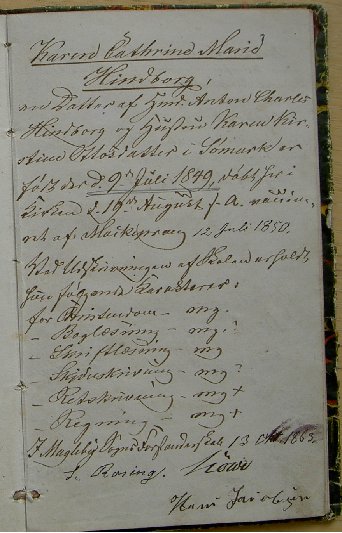 Karen Cathrine Marie
Hindborg,
en Datter af Hmd. Anton Charles
Hindborg og Hustru Karen Kir-
stine Ottosdatter i Sømark er
født den d. 9de Juli 1849, døbt her i
Kirken d. August s. A. vaccine-
ret af Mackeprang 12 Juli 1850.
Ved Udskrivningen af Skolen erholdt
hun følgende Karakterer:
for Christendom - mg.
- Boglæsning - mg?
- Skriftlæsning - mg
- Skjønskrivning - mg?
- Retskrivning - mg +
- Regning - mg +
J. Magleby 13 Okt. 1863.
Rosing.
Hans Jacobsen